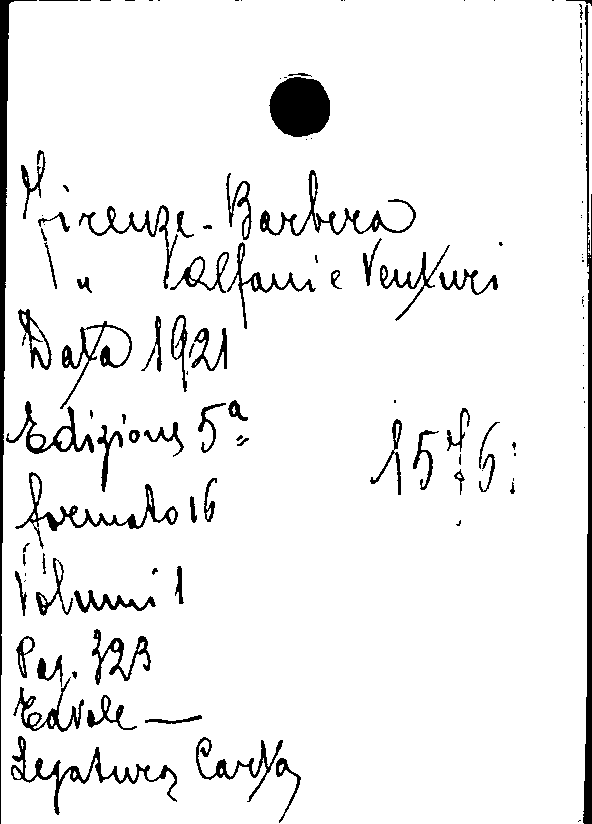 Firenze - Barbera
" Alfani e Venturi
Data 1921
Edizione 5ª
formato 16
1576
Volumi 1
Pag. 323
Tavole —
Legatura Carta